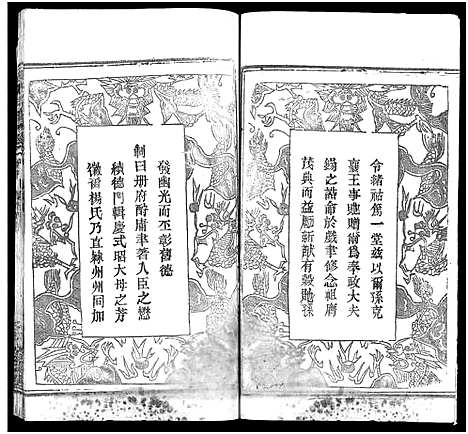 令緒祜篤一堂茲以爾孫克
襄王事貤贈爾爲奉政大夫
錫之誥命於戲聿修念祖膺
茂典而益勵新猷有穀貽孫
發幽光而丕彰舊德
制曰冊府酬庸聿著人臣之懋
績德門輯慶式昭大母之芳
徽爾楊氏乃直隸州州同加